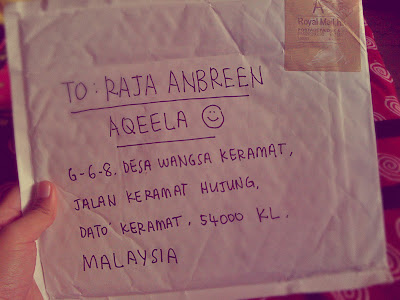 Royal Mail
TO: RAJA ANBREEN
AQEELA ☺
6-6-8, DESA WANGSA KERAMAT,
JALAN KERAMAT HUJUNG,
DATO' KERAMAT, 54000 KL,
MALAYSIA